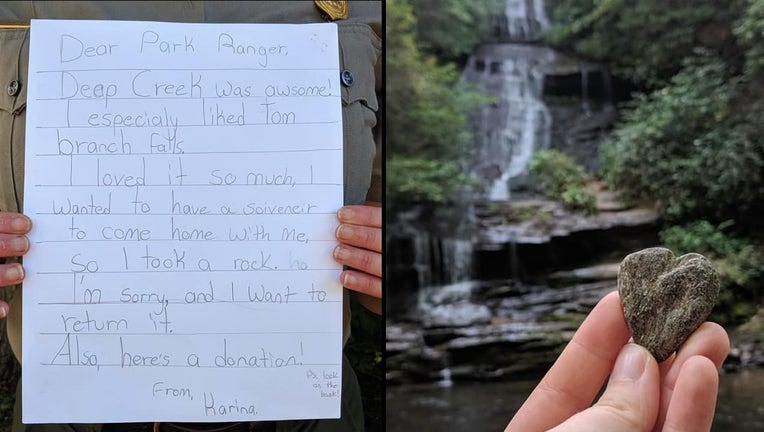 Dear Park Ranger,
Deep Creek was awsome!
I especialy liked tom
branch falls.
I loved it so much, I
wanted to have a soiveneir
to come home with me,
so I took a rock.
I'm sorry, and I want to
return it.
Also, here's a donation!
Ps, look
on the
back!
From,
Karina.